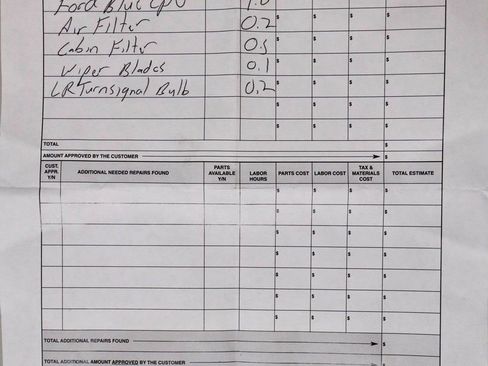 Ford Blue CPO 1.0 $ $ $ $
Air Filter 0.2 $ $ $ $
Cabin Filter 0.5 $ $ $ $
Wiper Blades 0.1 $ $ $ $
LR Turnsignal Bulb 0.2 $ $ $ $
$ $ $ $
$ $ $ $
TOTAL $
AMOUNT APPROVED BY THE CUSTOMER $
CUST. APPR. Y/N ADDITIONAL NEEDED REPAIRS FOUND PARTS AVAILABLE Y/N LABOR HOURS PARTS COST LABOR COST TAX & MATERIALS COST TOTAL ESTIMATE
$ $ $ $
$ $ $ $
$ $ $ $
$ $ $ $
$ $ $ $
$ $ $ $
$ $ $ $
TOTAL ADDITIONAL REPAIRS FOUND $
TOTAL ADDITIONAL AMOUNT APPROVED BY THE CUSTOMER $